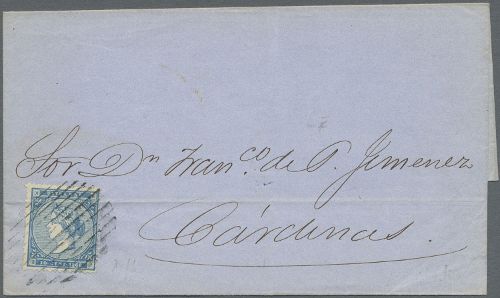 Sor. Dn. Franco. de P. Jimenez
Cárdenas.